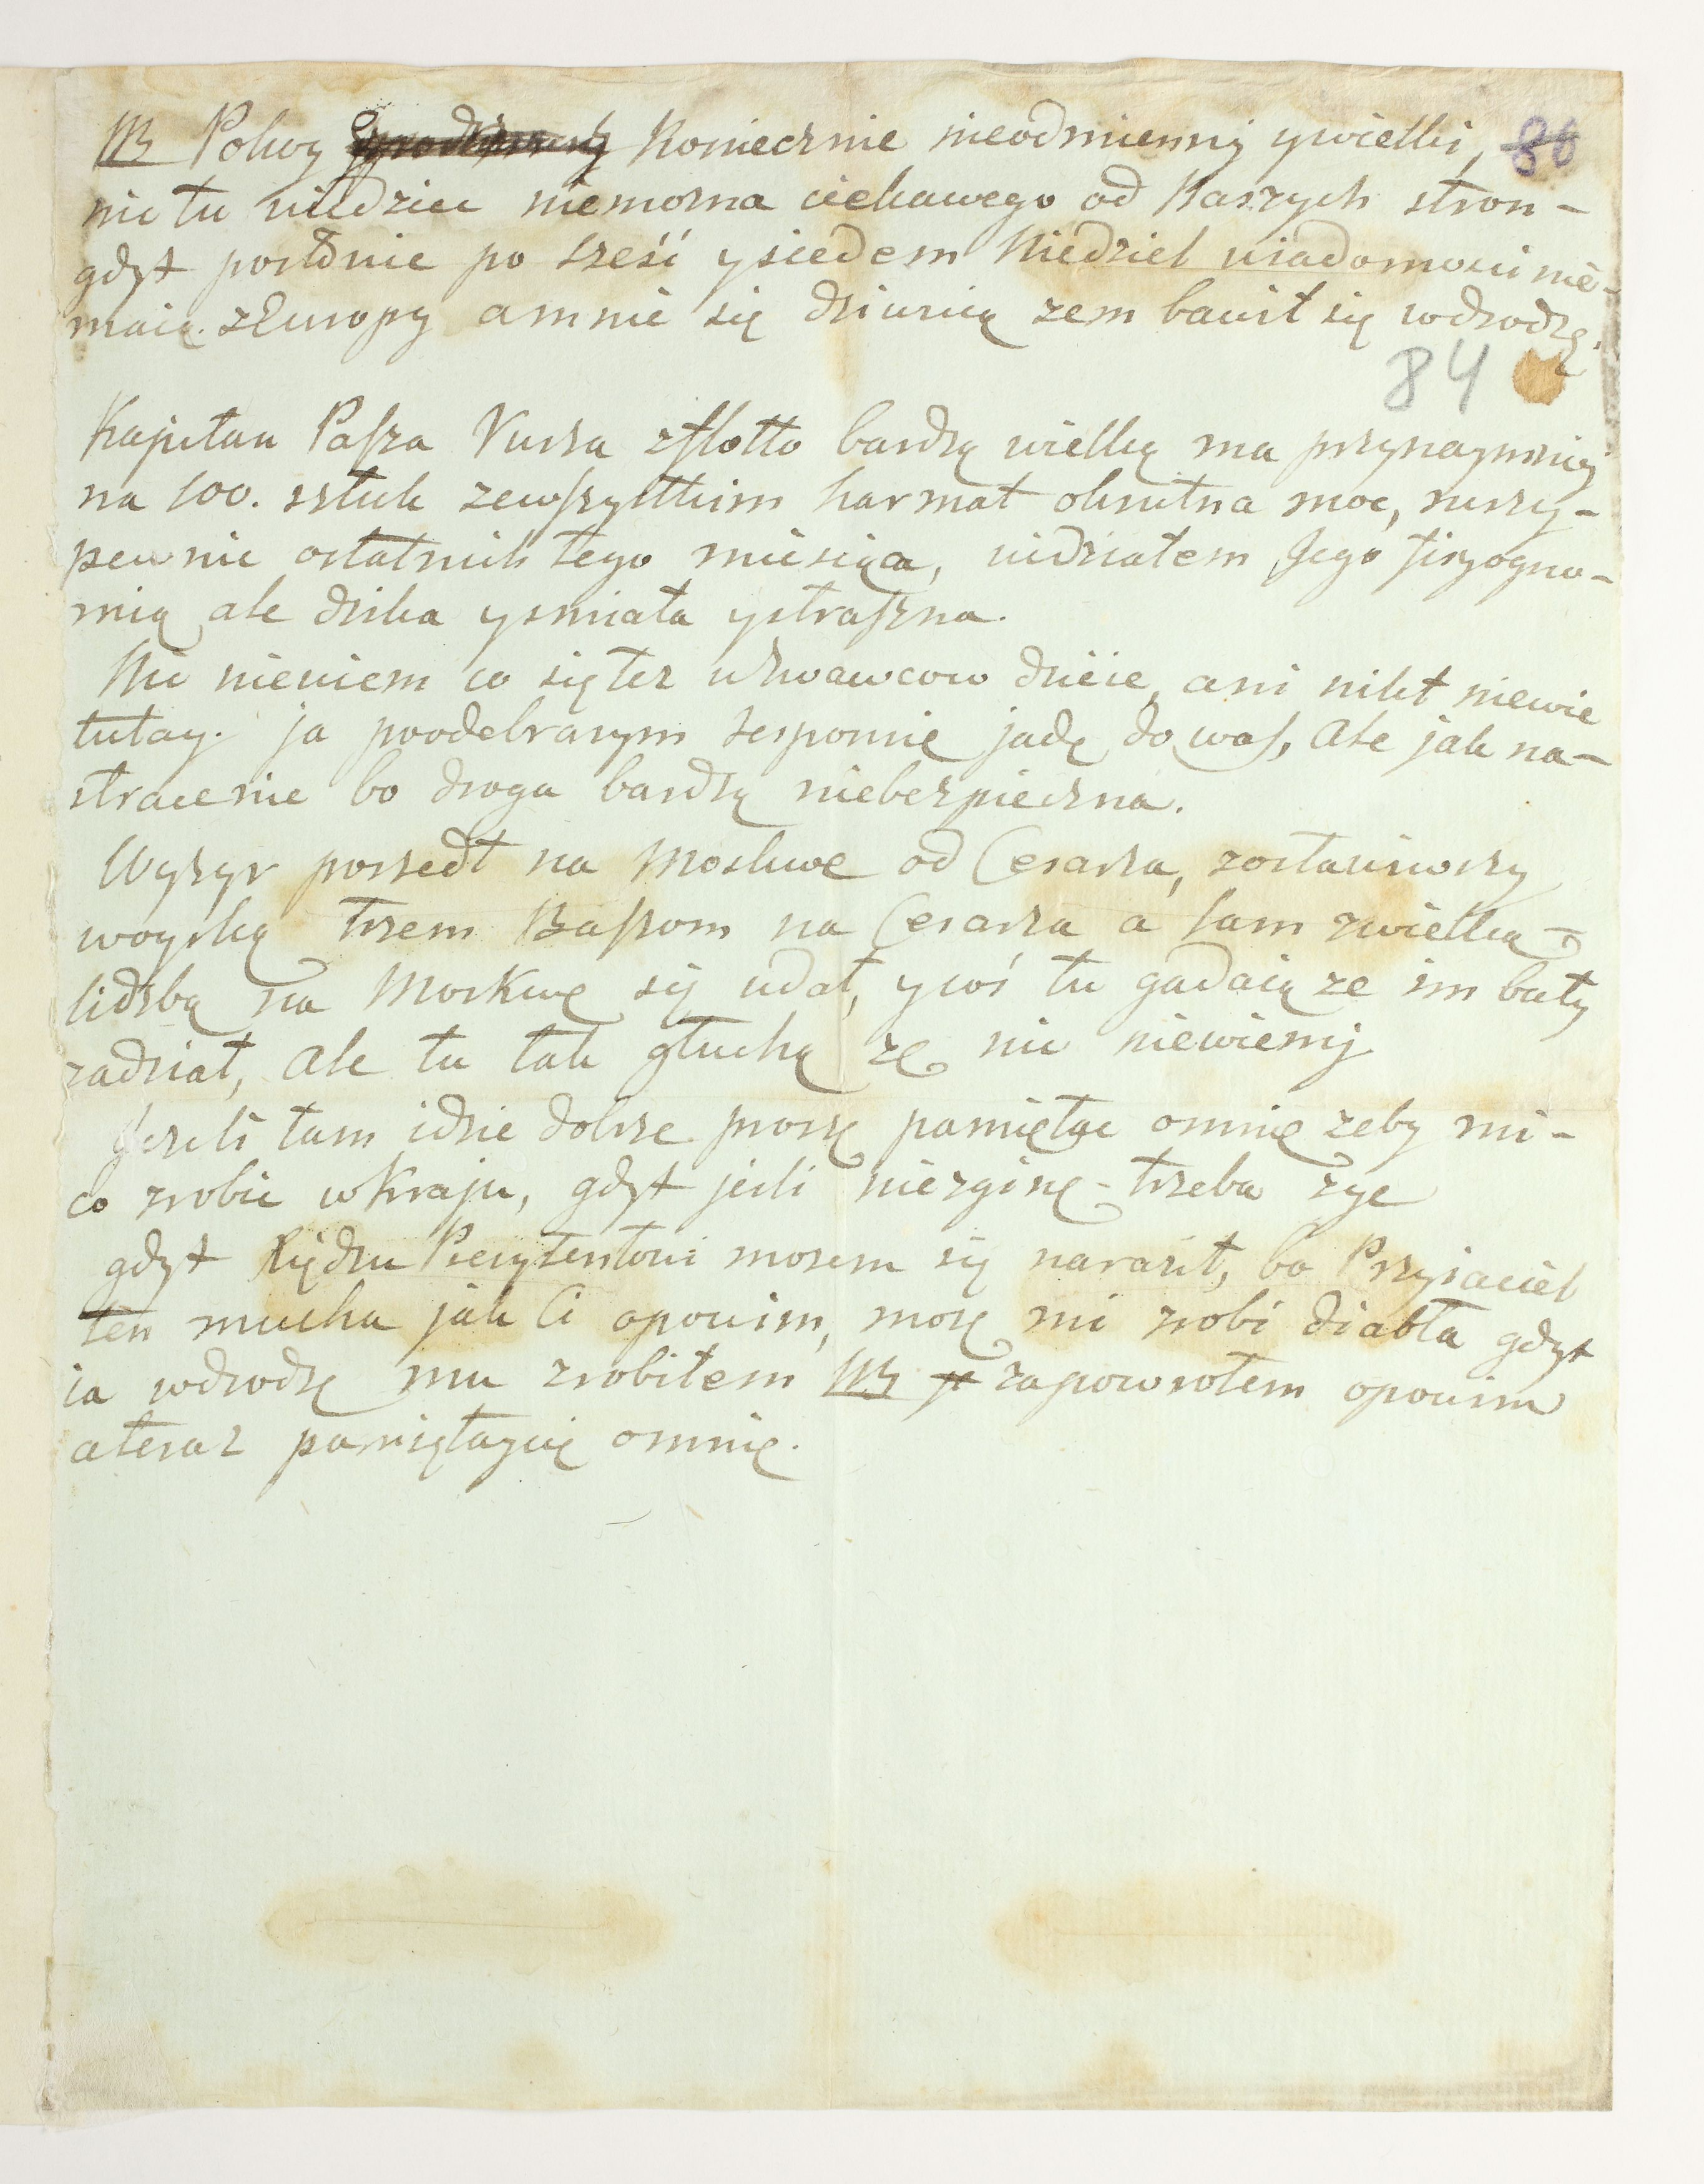 NB Pokoy koniecznie nieodmienny y wielki, 86
nic tu wiedziec niemozna ciekawego od Naszych stron -
gdyż posłdnie po sześć y siedem Niedziel wiadomosci nie-
maią. z Europy a mnie się dziwuią zem bawił się w drodzę.
84
Kapitan Pasza Rusza z flotto bardzą wielką ma przynaymniy
na 100. sztuk ze wszystkim harmat okrutna moc, ruszy -
pewnie ostatnich tego miesiąca, widziałem Jego fizyogno-
mią ale dzika y smiała y straszna.
Nic niewiem co się tez u Szwedow dzieie, ani nikt niewie
tutay. ja po odebranym responsie jadę do was, Ale jak na -
stracenie bo droga bardzą niebezpieczna.
Wyzyr poszedł na Moskwe od Cesarza, zostawiwszy
woyską trzem Baszom na Cesarza a sam z wielką -
lidzbą na Moskwę się udał, y coś tu gadaią ze im buty
zadział, Ale tu tak głuchą zę nic niewiemy
Jezeli tam idzie dobrze proszę pamiętac o mnię zeby mi -
co zrobic w Kraju, gdyż jesli niezginę - trzeba zyc
gdyż Xiędzu Prezydentowi mozem się naraził, bo Przyiaciel
ten mucha jak Ci opowim, mozę mi zrobi diabła gdyż
ia w drodzę mu zrobiłem NB za powrotem opowim
a teraz pamiętaycię o mnię.